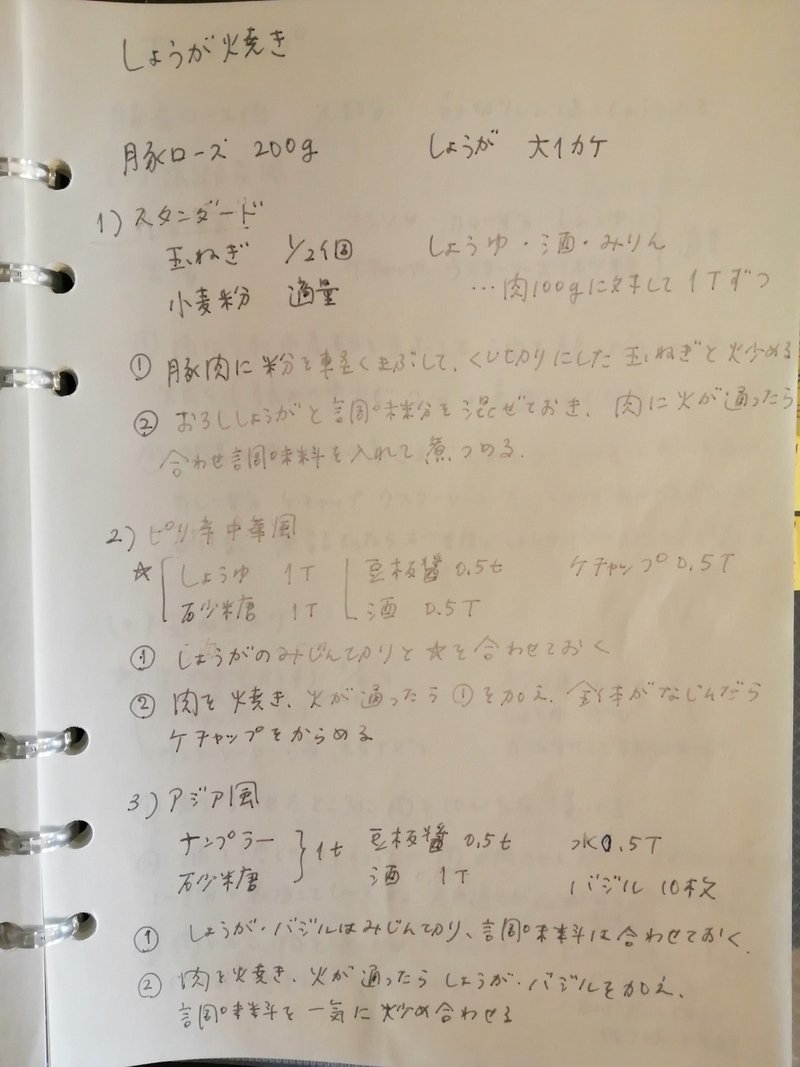 しょうが焼き
豚ロース 200g しょうが 大1カケ
1) スタンダード
玉ねぎ 1/2個 しょうゆ・酒・みりん
小麦粉 適量 …肉100gに対して 1Tずつ
① 豚肉に粉を軽くまぶして、くし切りにした玉ねぎと炒める
② おろししょうがと調味料分を混ぜておき、肉に火が通ったら
合わせ調味料を入れて煮つめる.
2) ピリ辛中華風
☆ しょうゆ 1T 豆板醤 0.5t ケチャップ 0.5T
砂糖 1T 酒 0.5T
① しょうがのみじん切りと☆を合わせておく
② 肉を焼き、火が通ったら①を加え、全体がなじんだら
ケチャップをからめる
3) アジア風
ナンプラー } 1t 豆板醤 0.5t 水0.5T
砂糖 酒 1T バジル 10枚
① しょうが・バジルはみじん切り、調味料は合わせておく.
② 肉を焼き、火が通ったらしょうが・バジルを加え、
調味料を一気に炒め合わせる